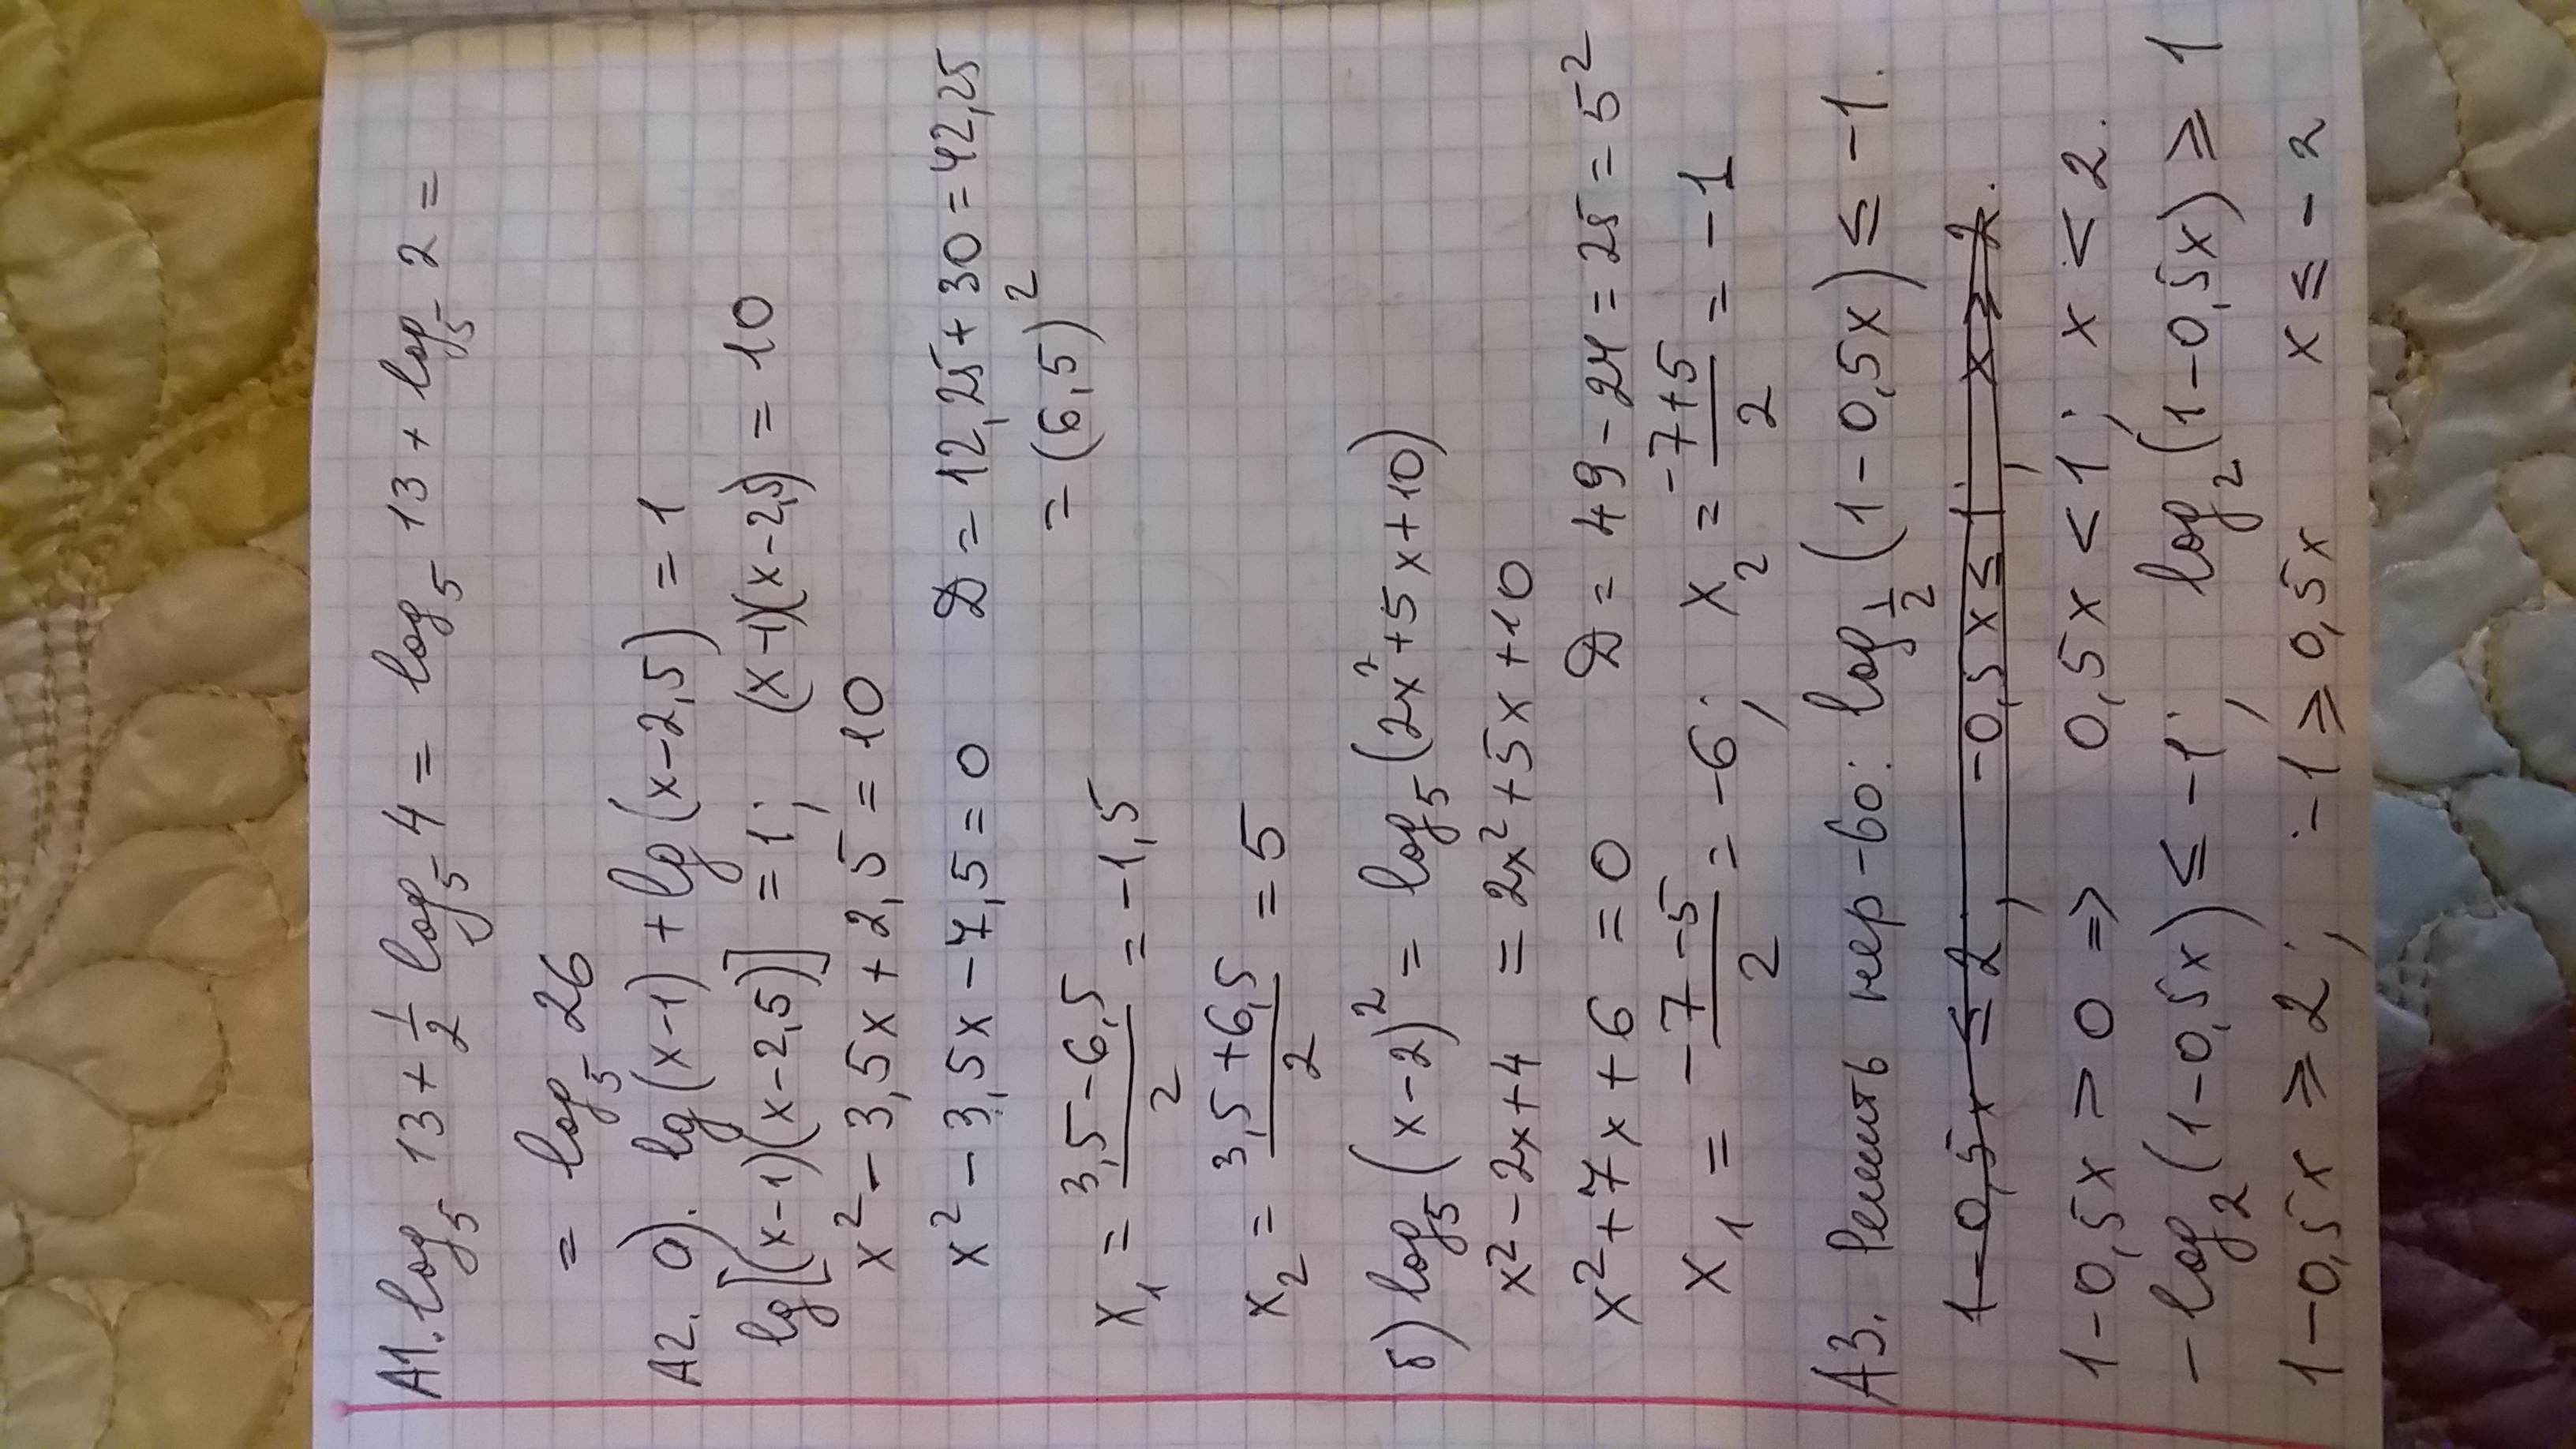 А1. log₅ 13 + 1/2 log₅ 4 = log₅ 13 + log₅ 2 =
= log₅ 26
А2. а). lg(x-1) + lg(x-2,5) = 1
lg[(x-1)(x-2,5)] = 1; (x-1)(x-2,5) = 10
x² - 3,5x + 2,5 = 10
x² - 3,5x - 7,5 = 0 D = 12,25 + 30 = 42,25
= (6,5)²
x₁ = (3,5 - 6,5)/2 = -1,5
x₂ = (3,5 + 6,5)/2 = 5
б) log₅(x-2)² = log₅(2x²+5x+10)
x² - 2x + 4 = 2x² + 5x + 10
x² + 7x + 6 = 0 D = 49 - 24 = 25 = 5²
x₁ = (-7-5)/2 = -6; x₂ = (-7+5)/2 = -1
А3. Решить нер-во: log_1/2 (1-0,5x) ≤ -1.
1-0,5x ≤ 2, -0,5x ≤ 1; x ≥ 2.
1-0,5x > 0 => 0,5x < 1; x < 2.
-log₂(1-0,5x) ≤ -1; log₂(1-0,5x) ≥ 1
1-0,5x ≥ 2; -1 ≥ 0,5x x ≤ -2